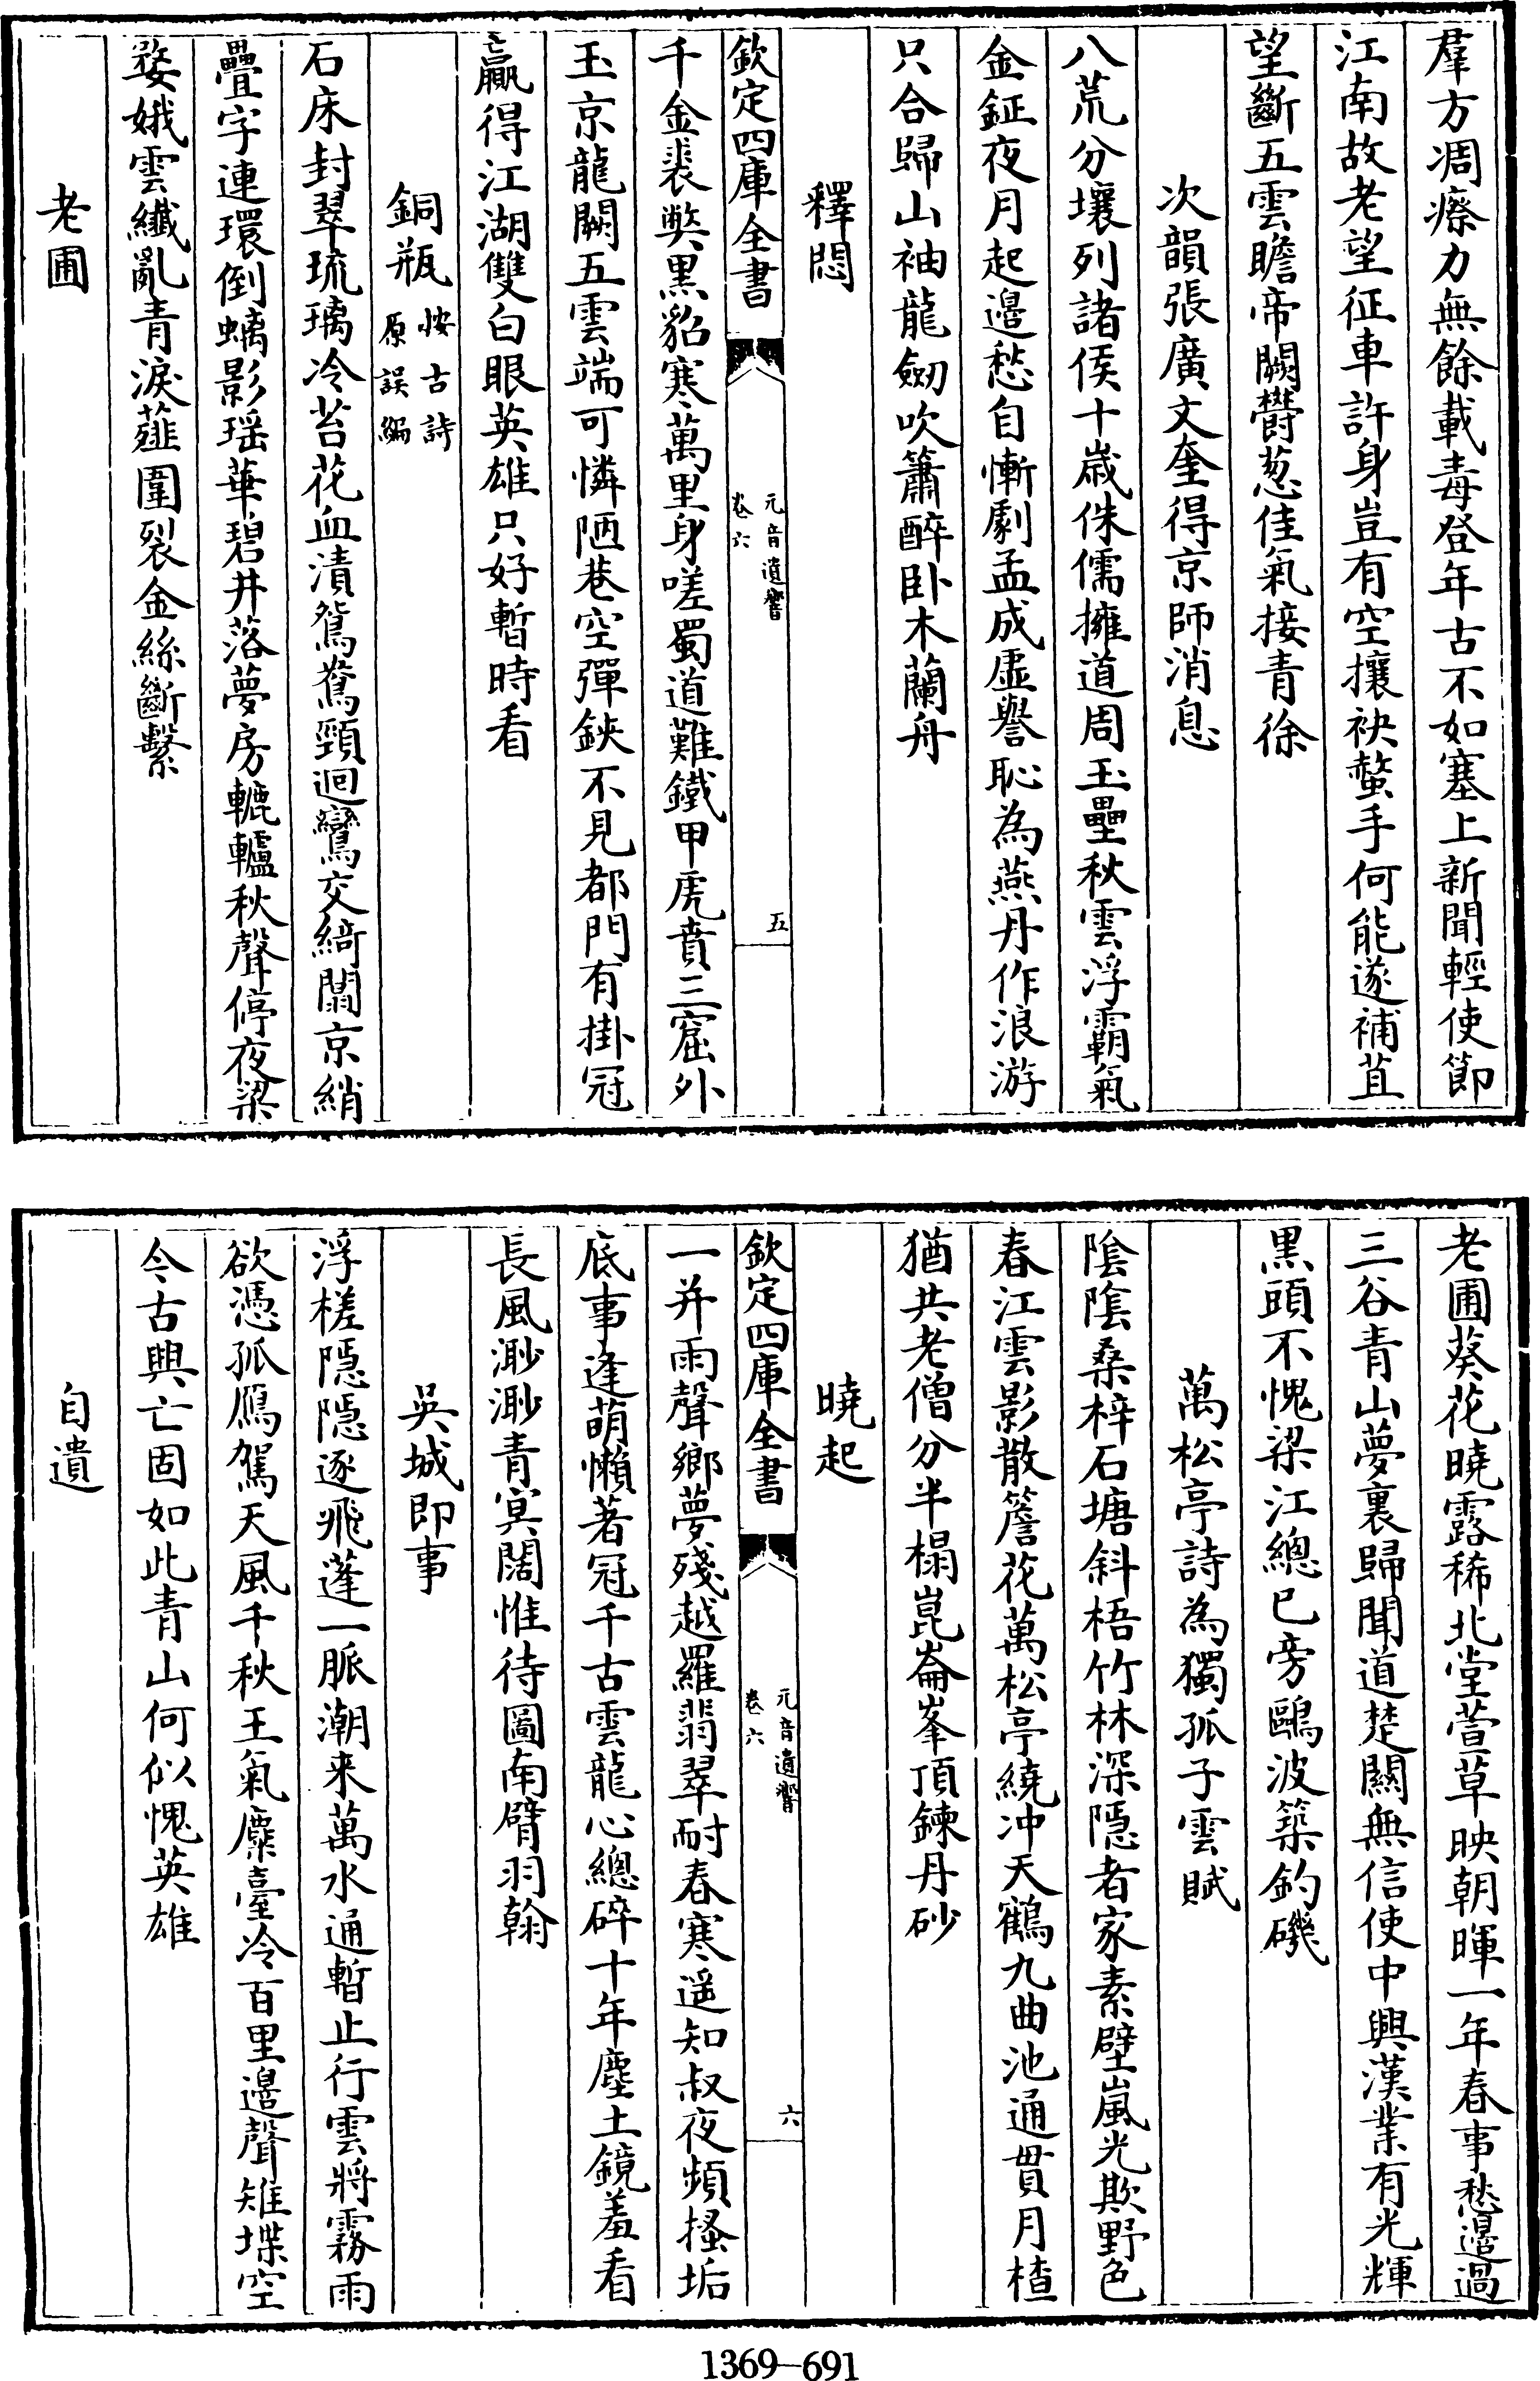 羣方凋瘵力無餘載毒登年古不如塞上新聞輕使節
江南故老望征車許身豈有空攘袂螯手何能遂補苴
望斷五雲瞻帝闕欝葱佳氣接青徐
次韻張廣文奎得京師消息
八荒分壤列諸侯十歳侏儒擁道周玉壘秋雲浮霸氣
金鉦夜月起邉愁自慚劇孟成虚譽恥為燕丹作浪游
只合歸山袖龍劒吹簫醉卧木蘭舟
釋悶
欽定四庫全書
元音遺響
卷六
五
千金裘弊黒貂寒萬里身嗟蜀道難鐵甲虎賁三窟外
玉京龍闕五雲端可憐陋巷空彈鋏不見都門有掛冠
贏得江湖雙白眼英雄只好暫時看
銅瓶
按古詩
原誤編
石床封翠琉璃冷苔花血漬鴛鴦頸迴鸞交綺闟京綃
疊字連環倒螭影瑶華碧井落夢房轆轤秋聲停夜梁
婺娥雲纎亂青淚薤圍裂金絲斷繫
老圃
老圃葵花曉露稀北堂萱草映朝暉一年春事愁邉過
三谷青山夢裏歸聞道楚關無信使中興漢業有光輝
黒頭不愧梁江總已旁鷗波築釣磯
萬松亭詩為獨孤子雲賦
陰陰桑梓石塘斜梧竹林深隠者家素壁嵐光欺野色
春江雲影散簷花萬松亭繞冲天鶴九曲池通貫月楂
猶共老僧分半榻崑崙峯頂鍊丹砂
曉起
欽定四庫全書
元音遺響
卷六
六
一并雨聲鄉夢殘越羅翡翠耐春寒遥知叔夜頻搔垢
底事逢萌懶著冠千古雲龍心總碎十年塵土鏡羞看
長風渺渺青冥闊惟待圖南臂羽翰
吳城即事
浮槎隠隠逐飛蓬一脈潮来萬水通暫止行雲將霧雨
欲憑孤鴈駕天風千秋王氣麋臺冷百里邉聲雉堞空
今古興亡固如此青山何似愧英雄
自遺
1369—691